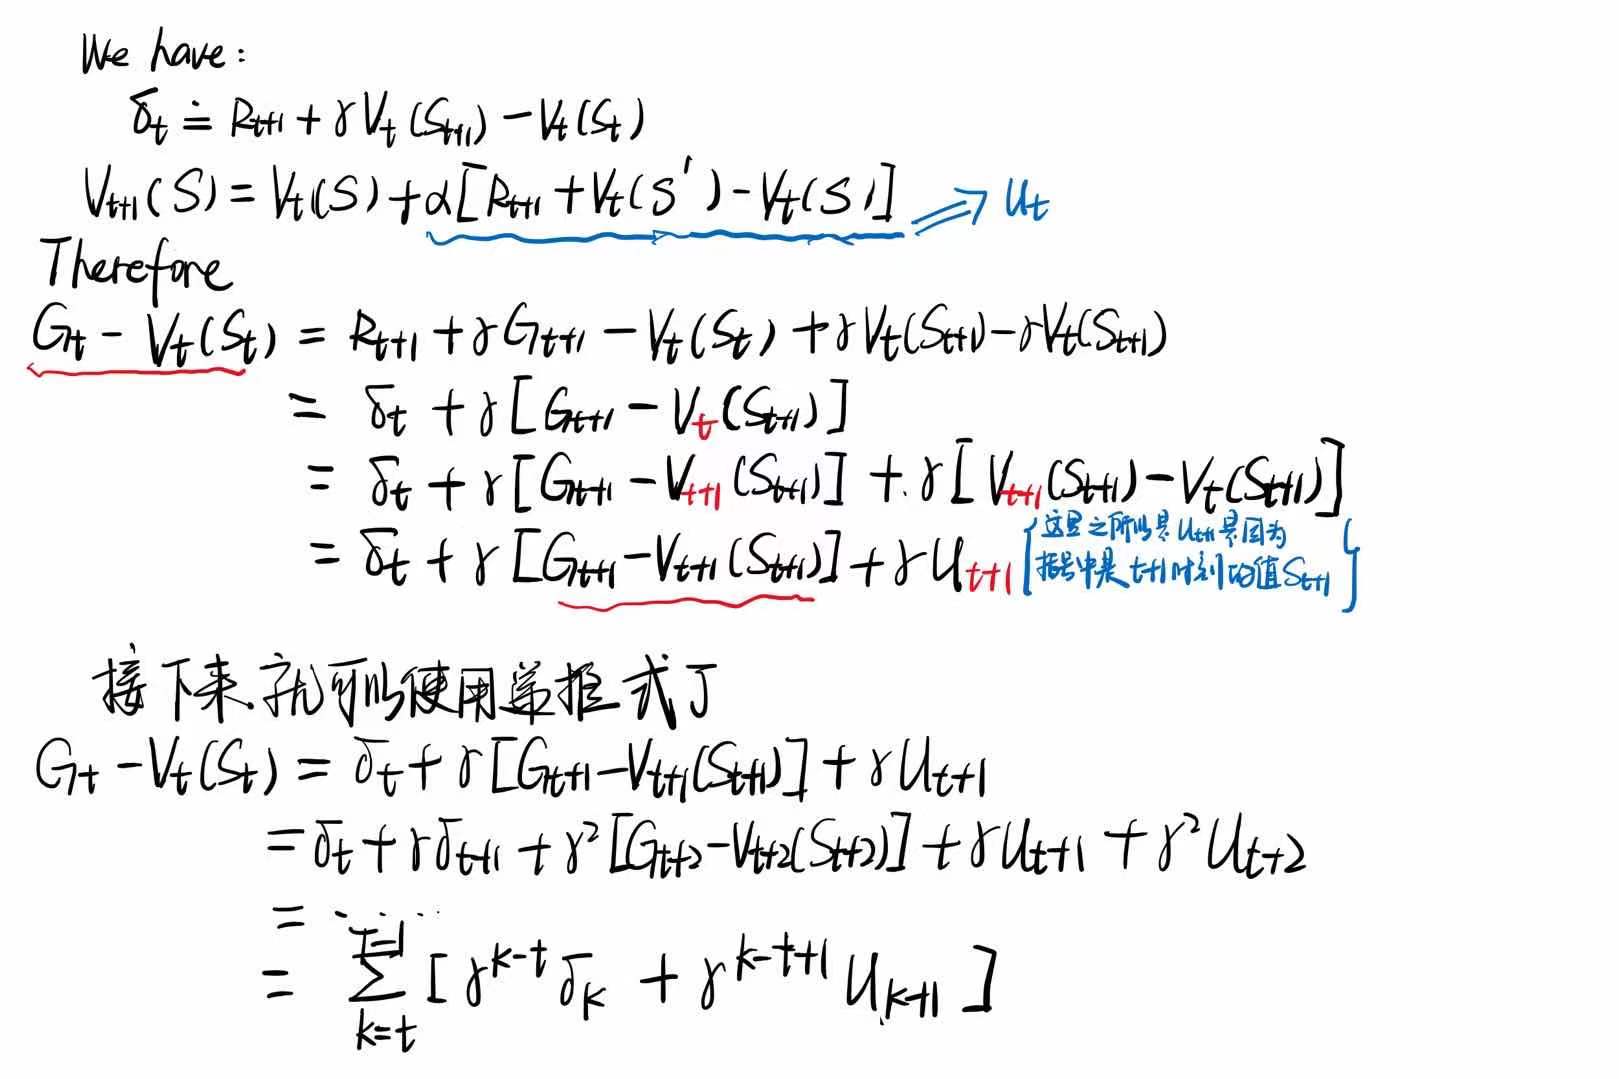 We have:
δ_t ≐ R_{t+1} + γV_t(S_{t+1}) - V_t(S_t)
V_{t+1}(S) = V_t(S) + α[R_{t+1} + V_t(S') - V_t(S)] ⇒ U_t
Therefore
G_t - V_t(S_t) = R_{t+1} + γG_{t+1} - V_t(S_t) + γV_t(S_{t+1}) - γV_t(S_{t+1})
= δ_t + γ[G_{t+1} - V_t(S_{t+1})]
= δ_t + γ[G_{t+1} - V_{t+1}(S_{t+1})] + γ[V_{t+1}(S_{t+1}) - V_t(S_{t+1})]
= δ_t + γ[G_{t+1} - V_{t+1}(S_{t+1})] + γU_{t+1}
{这里之所以是U_{t+1}是因为
括号中是t+1时刻的值S_{t+1}}
接下来.就可以使用递推式了
G_t - V_t(S_t) = δ_t + γ[G_{t+1} - V_{t+1}(S_{t+1})] + γU_{t+1}
= δ_t + γδ_{t+1} + γ²[G_{t+2} - V_{t+2}(S_{t+2})] + γU_{t+1} + γ²U_{t+2}
= .....
= ∑_{k=t}^{T-1} [γ^{k-t} δ_k + γ^{k-t+1} U_{k+1}]